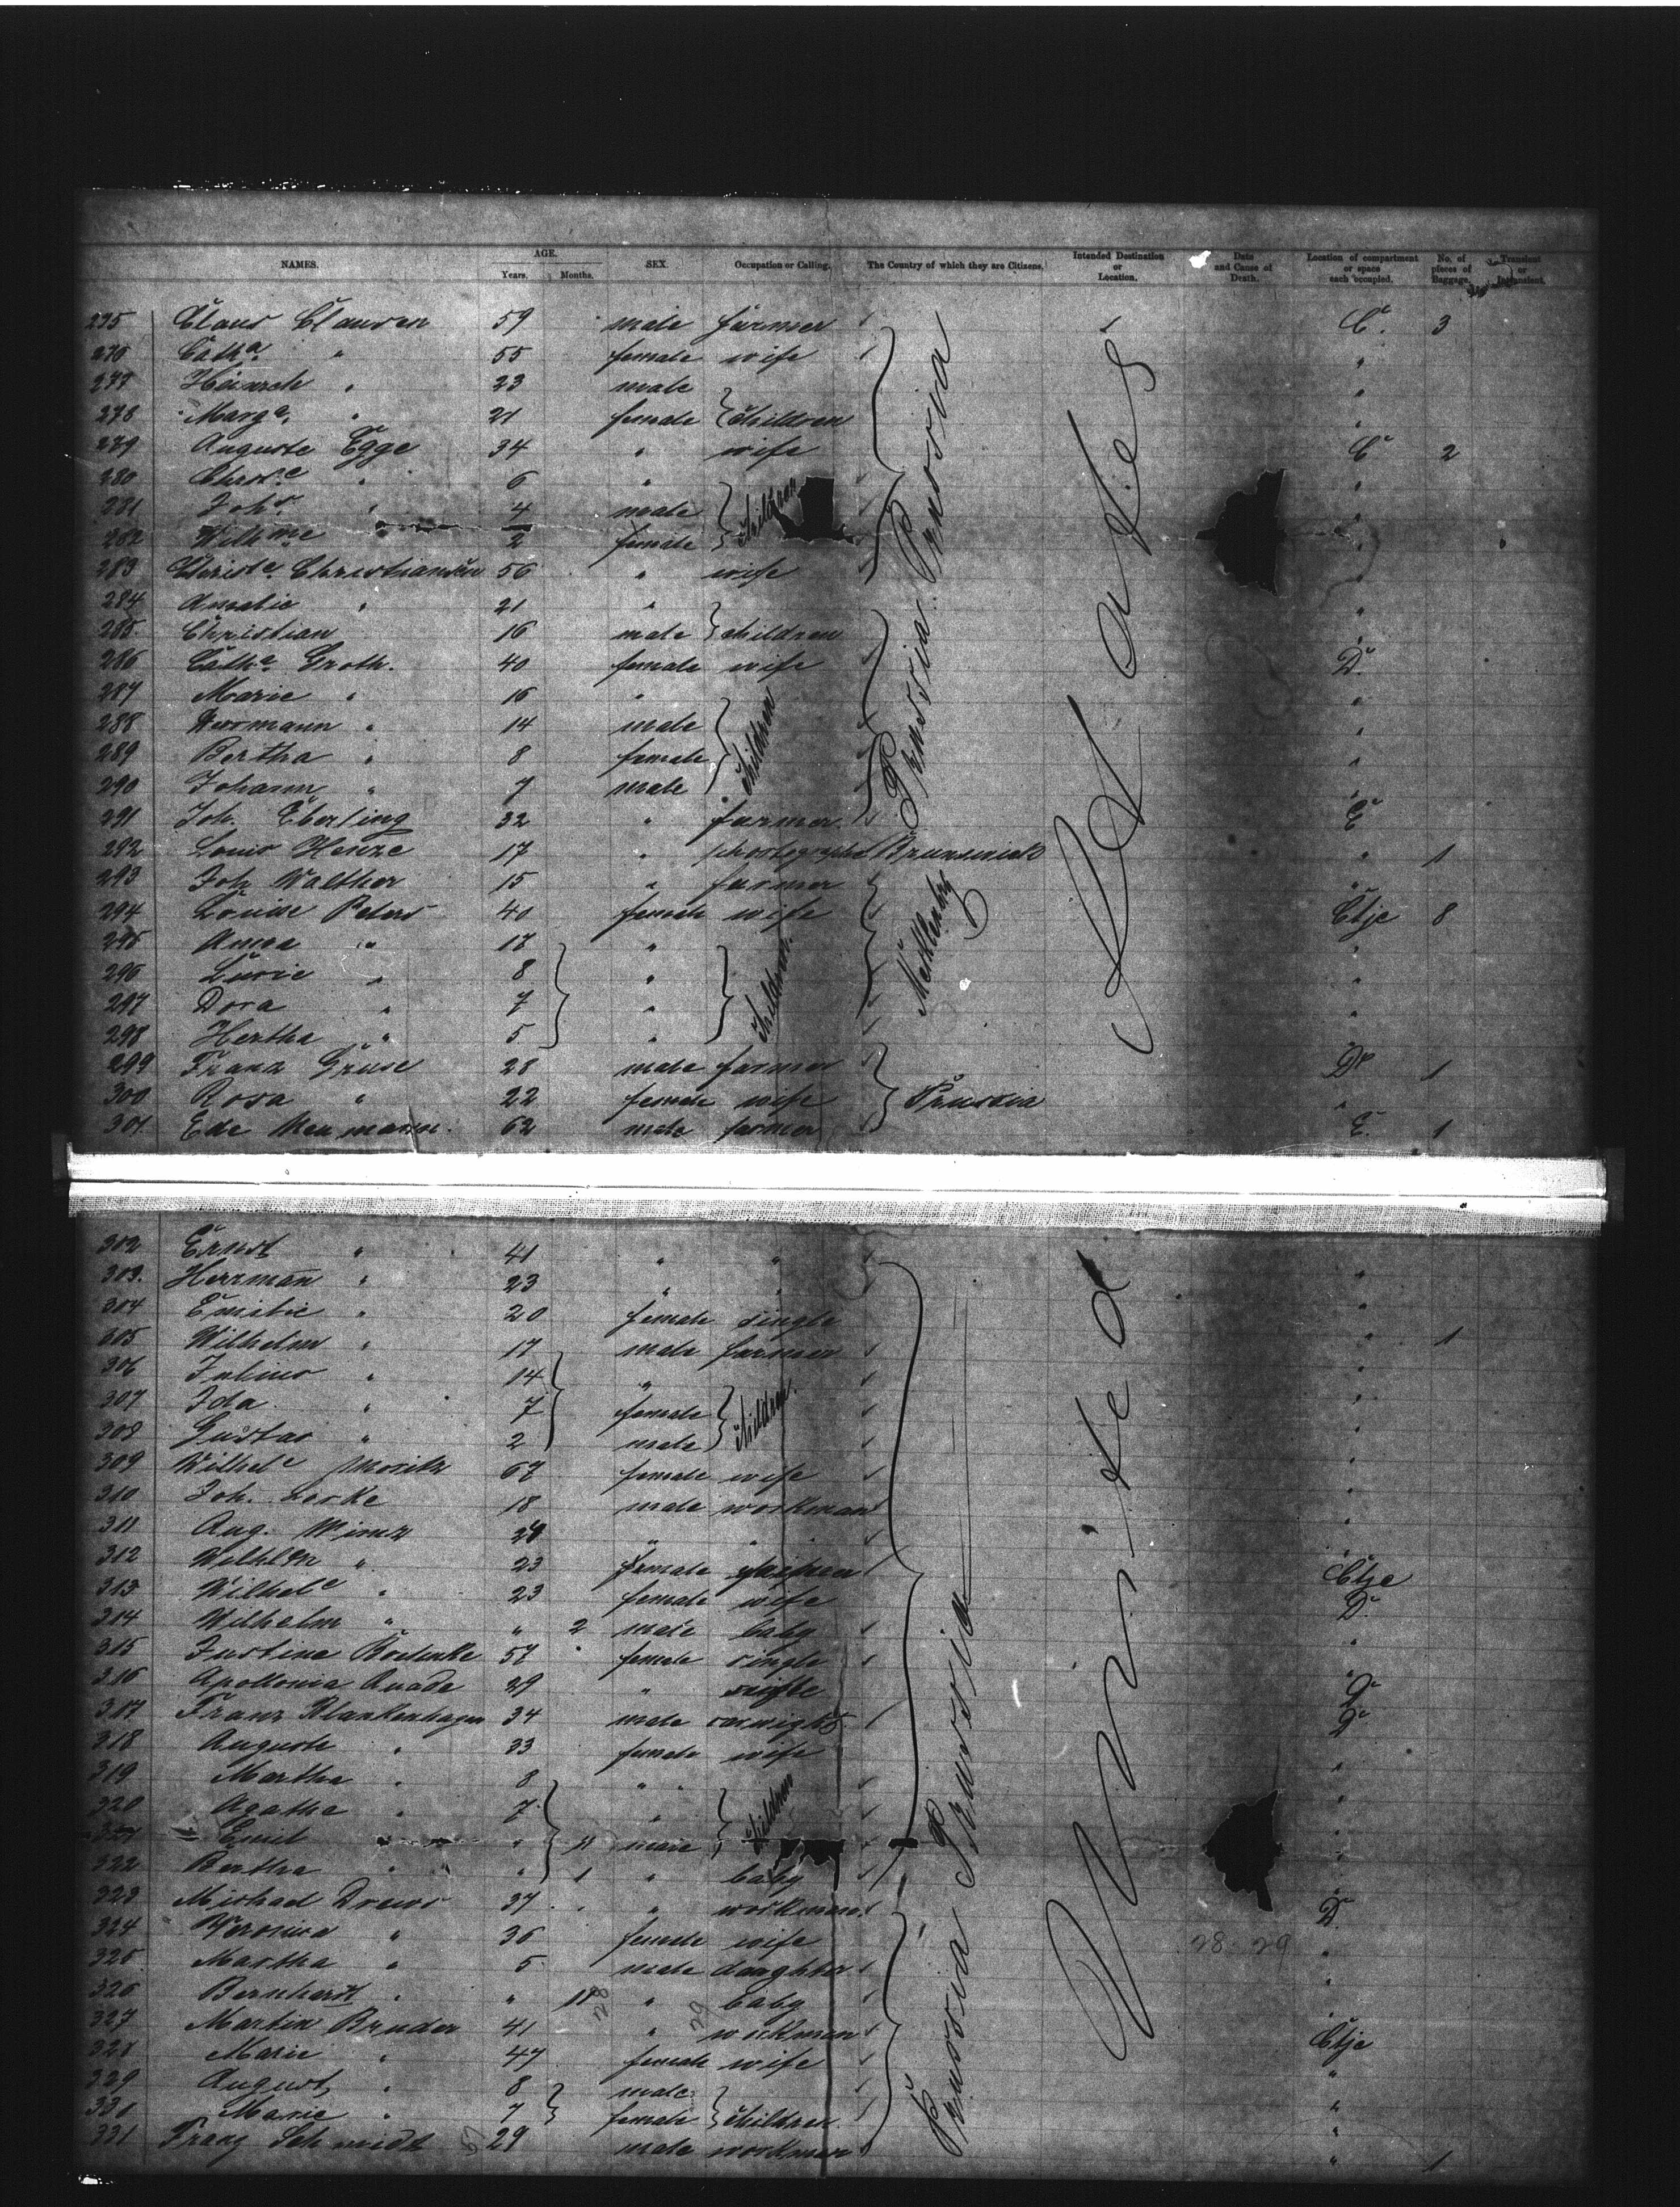 NAMES. AGE. Years. Months. SEX. Occupation or Calling. The Country of which they are Citizens. Intended Destination or Location. Date and Cause of Death. Location of compartment or space each occupied. No. of pieces of Baggage. Transient or
275 Claus Clausen 59 male farmer C. 3
276 Catha " 55 female wife "
277 Heinrich " 23 male "
278 Marga. " 21 female children "
279 Auguste Egge 34 " wife C 2
280 " 6 " "
281 Joh " 4 male Children "
282 Wilhme 2 female "
283 Christe Christiansen 56 " wife "
284 Amalie " 21 " "
285. Christian 16 male children
286 Catha Groth. 40 female wife D.
287 Marie " 16 " "
288 Herrmann " 14 male "
289 Bertha " 8 female Children "
290 Johann " 7 male "
291 Joh. Eberling 32 " farmer. E
292 Louis Henze 17 " Brunswick " 1
293 Joh Walther 15 " farmer "
294 Louise Peters 40 female wife Ctje 8
295 Anna " 17 " "
296 " 8 " "
297 Dora " 7 " Children "
298 Hertha " 5 " "
299 Franz Gruse 28 male farmer D 1
300 Rosa " 22 female wife Prussia "
301. Neumann. 62 male farmer E. 1
Prussia
Prussia
States
302 Ernst " 41 " "
303. Herrmann " 23 " "
304 Emilie " 20 female single "
305 Wilhelm " 17 male farmer " 1
306 Julius " 14 " "
307 Ida " 7 female children. "
308 Gustav " 2 male "
309 Wilhele Moritz 67 female wife "
310 Joh. 18 male workman "
311 Aug. "
312 " 23 Ctje
313 Wilhele " 23 female wife D.
314 Wilhelm " " 2 male baby "
315 Justine 57 female single "
316 Apollonia Quade 29 " D
317 Franz Klankenhagen 34 male D
318 Auguste " 33 female wife "
319 Martha " 8 " "
320 Agathe " 7 " children "
Emil " " 11 male "
322 Bertha " " 1 " baby "
323 Michael Drews 37 " workman. D
324 Veronica " 36 female wife "
325 Martha " 5 male daughter "
326 Bernhardt " " 11 " baby "
327 Martin Bruder 41 " workman Ctje
328 Marie " 47 female wife "
329 August " 8 male "
330 Marie " 7 female children "
331 Franz Schmidt 29 male workman " 1
Prussia
Prussia
United
28-29